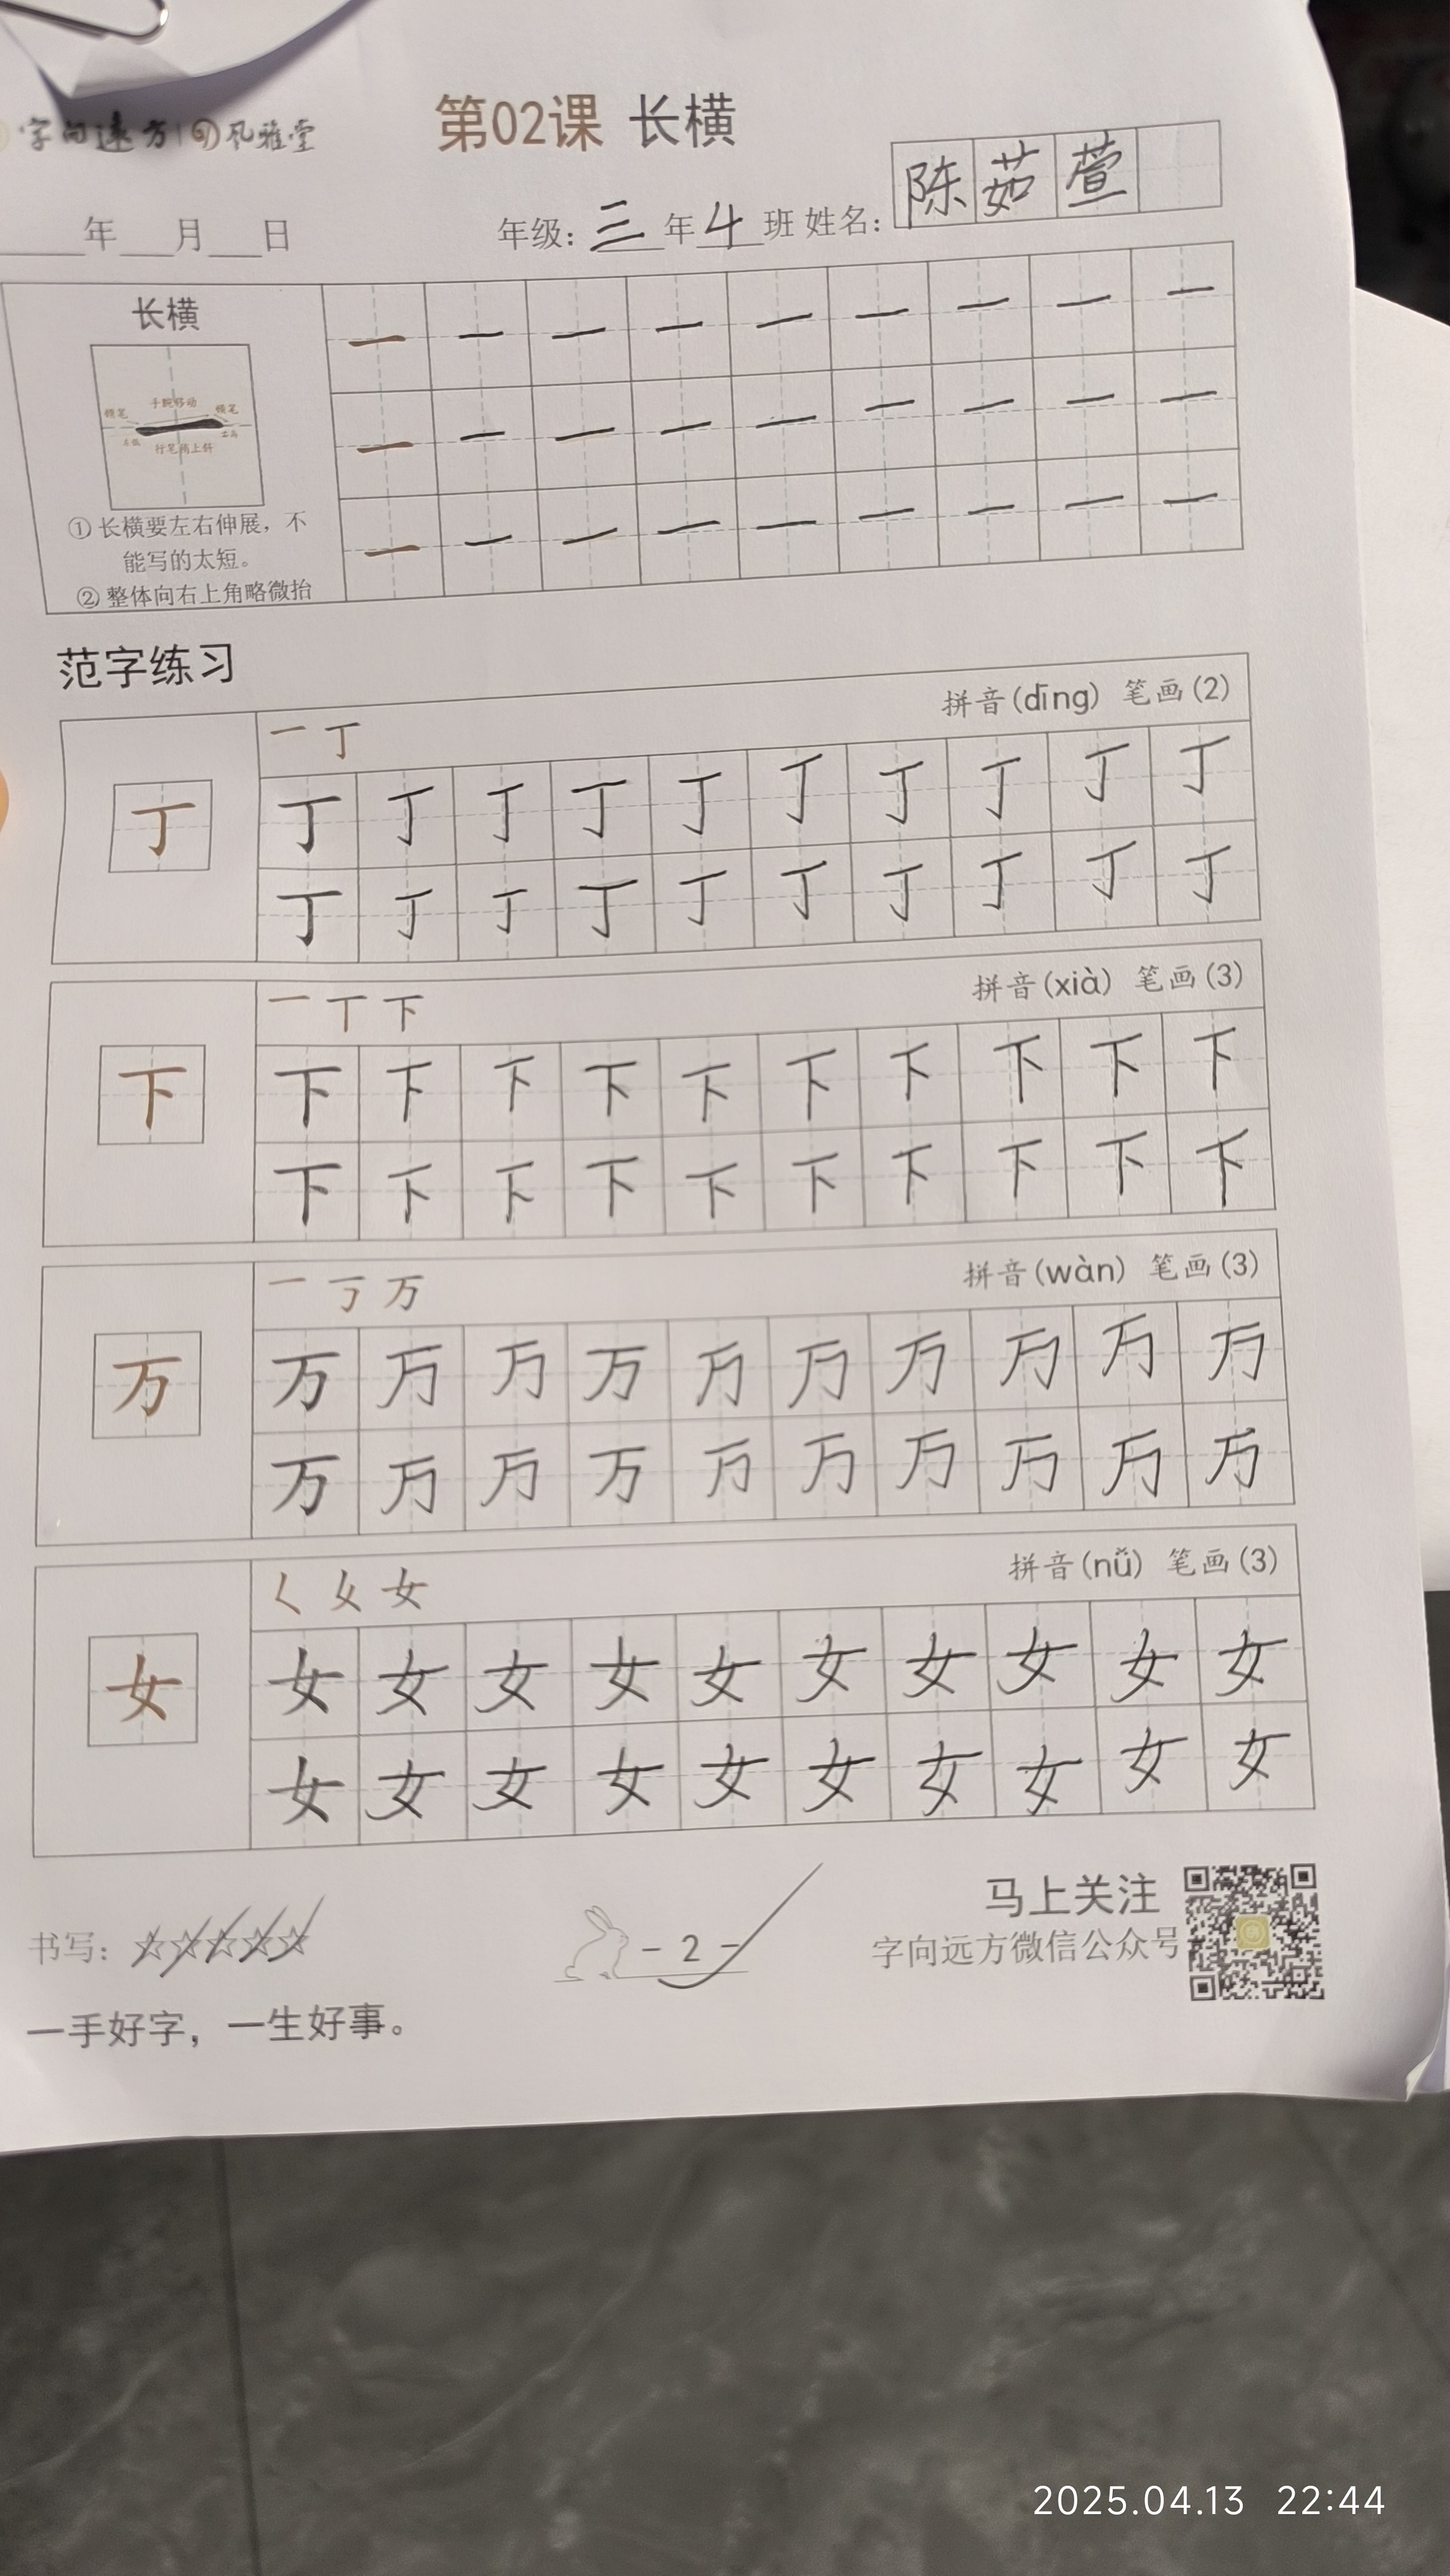 字向远方 | 风雅堂
第02课 长横
年 月 日 年级：三年4班 姓名：陈茹萱
长横
手腕移动
行笔稍上斜
① 长横要左右伸展，不
能写的太短。
② 整体向右上角略微抬
一 一 一 一 一 一 一 一 一
一 一 一 一 一 一 一 一 一
一 一 一 一 一 一 一 一 一
范字练习
一 丁 拼音(dīng) 笔画(2)
丁
丁 丁 丁 丁 丁 丁 丁 丁 丁 丁
丁 丁 丁 丁 丁 丁 丁 丁 丁 丁
一 丅 下 拼音(xià) 笔画(3)
下
下 下 下 下 下 下 下 下 下 下
下 下 下 下 下 下 下 下 下 下
一 丂 万 拼音(wàn) 笔画(3)
万
万 万 万 万 万 万 万 万 万 万
万 万 万 万 万 万 万 万 万 万
拼音(nǚ) 笔画(3)
女
女 女 女 女 女 女 女 女 女 女
女 女 女 女 女 女 女 女 女 女
书写：☆☆☆☆☆
- 2 -
马上关注
字向远方微信公众号
一手好字，一生好事。
2025.04.13 22:44